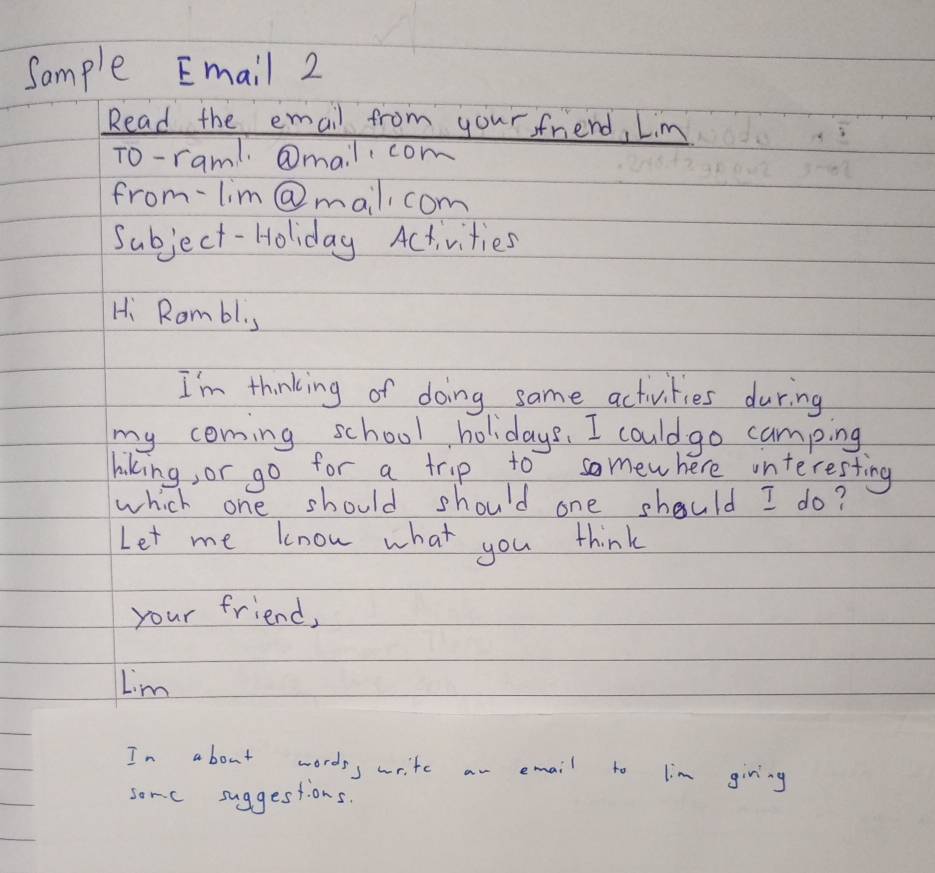 Sample Email 2
Read the email from your friend, Lim
TO - ramli @mail.com
from - lim @ mail.com
Subject - Holiday Activities
Hi Rambli,
I'm thinking of doing same activities during
my coming school holidays. I could go camping
hiking, or go for a trip to somewhere interesting
which one should should one should I do?
Let me know what you think
your friend,
Lim
In about words, write an email to lim giving
some suggestions.